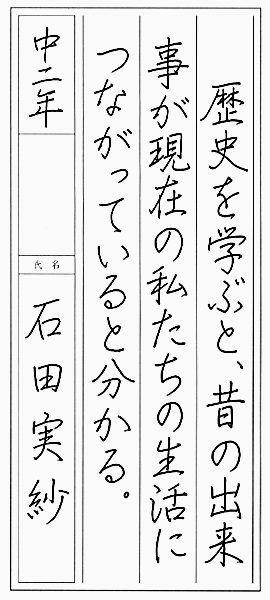 歴史を学ぶと、昔の出来
事が現在の私たちの生活に
つながっていると分かる。
中二年
氏名
石田実紗